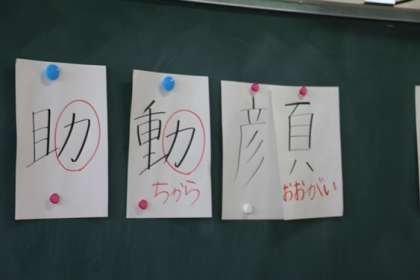 助
動
ちから
顔
おおがい